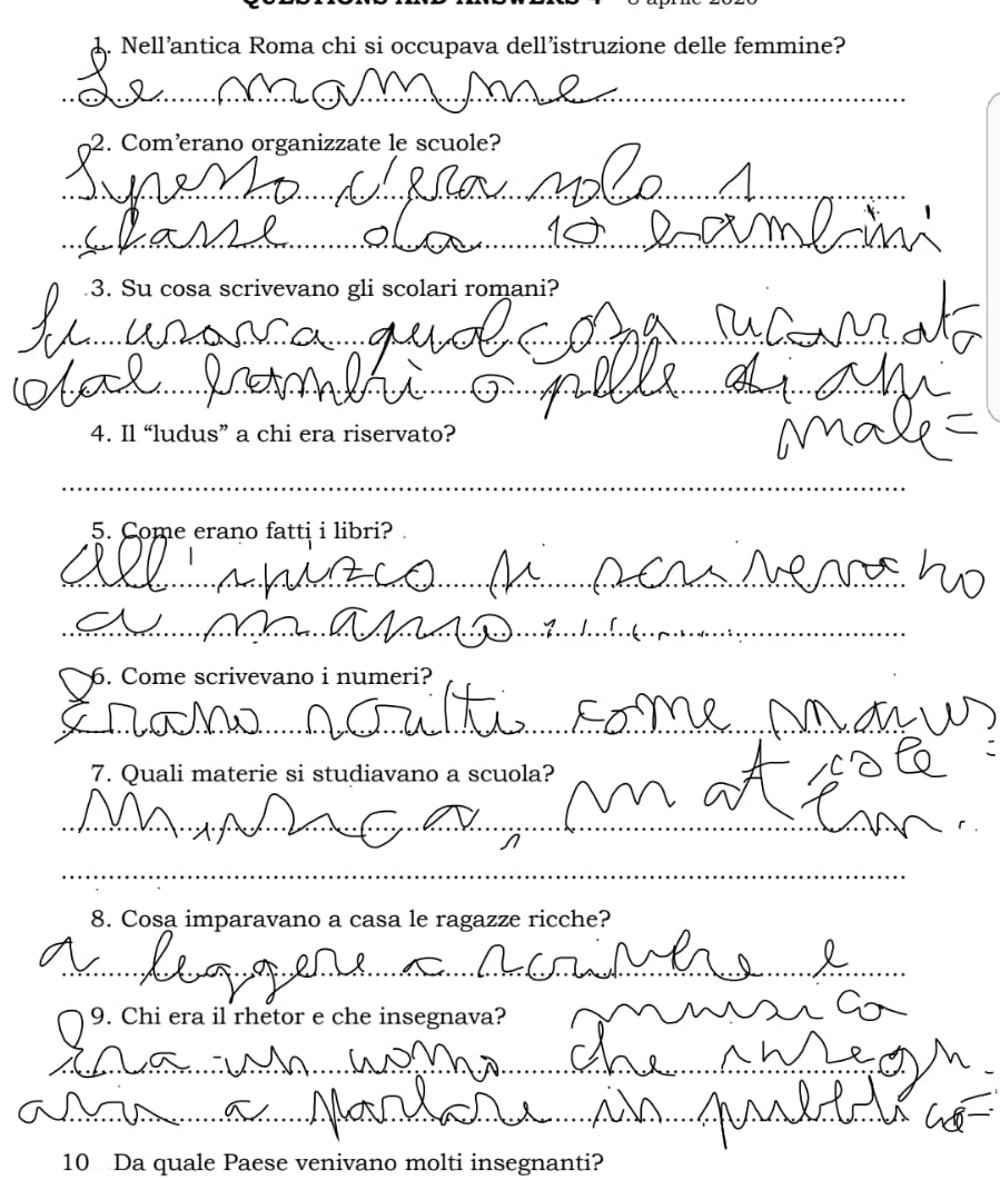 QUESTIONS AND ANSWERS 4 8 aprile 2020
1. Nell'antica Roma chi si occupava dell'istruzione delle femmine?
Le mamme
2. Com'erano organizzate le scuole?
Spesso c'era solo 1
classe da 10 bambini
3. Su cosa scrivevano gli scolari romani?
Si usava qualcosa ricavato
dal bambù o pelle di ani
male=
4. Il "ludus" a chi era riservato?
5. Come erano fatti i libri?
all'inizio si scrivevano
a mano
6. Come scrivevano i numeri?
Erano scritti come maius
cole
7. Quali materie si studiavano a scuola?
Musica, matem.
8. Cosa imparavano a casa le ragazze ricche?
a leggere a scrivere e
musica
9. Chi era il rhetor e che insegnava?
Era un uomo che insegn
ava a parlare in pubblico=
10 Da quale Paese venivano molti insegnanti?